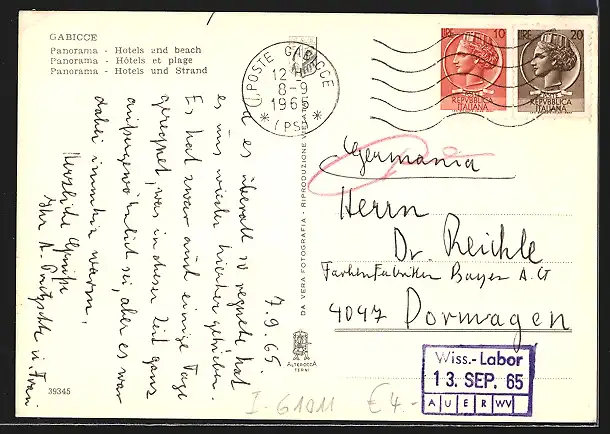 GABICCE
Panorama - Hotels and beach
Panorama - Hôtels et plage
Panorama - Hotels und Strand
U. POSTE GABICCE
12 H
8-9
1965
* (PS) *
LIRE 10
POSTE
REPVBBLICA
ITALIANA
LIRE 20
POSTE
REPVBBLICA
ITALIANA
7.9.65
es überall so regnete hat
es uns wieder hierher getrieben.
Es hat zwar auch einige Tage
geregnet, was in dieser Zeit ganz
aussergewöhnlich sei, aber es war
dabei immerhin warm.
Herzliche Grüsse
Ihr u. Frau
DA VERA FOTOGRAFIA - RIPRODUZIONE VIETATA
ALTEROCCA
TERNI
39345
Germania
Herrn
Dr. Reichle
Farbenfabriken Bayer A.G
4047 Dormagen
Wiss.-Labor
13. SEP. 65
A U E R WV
I-61011 € 4.-